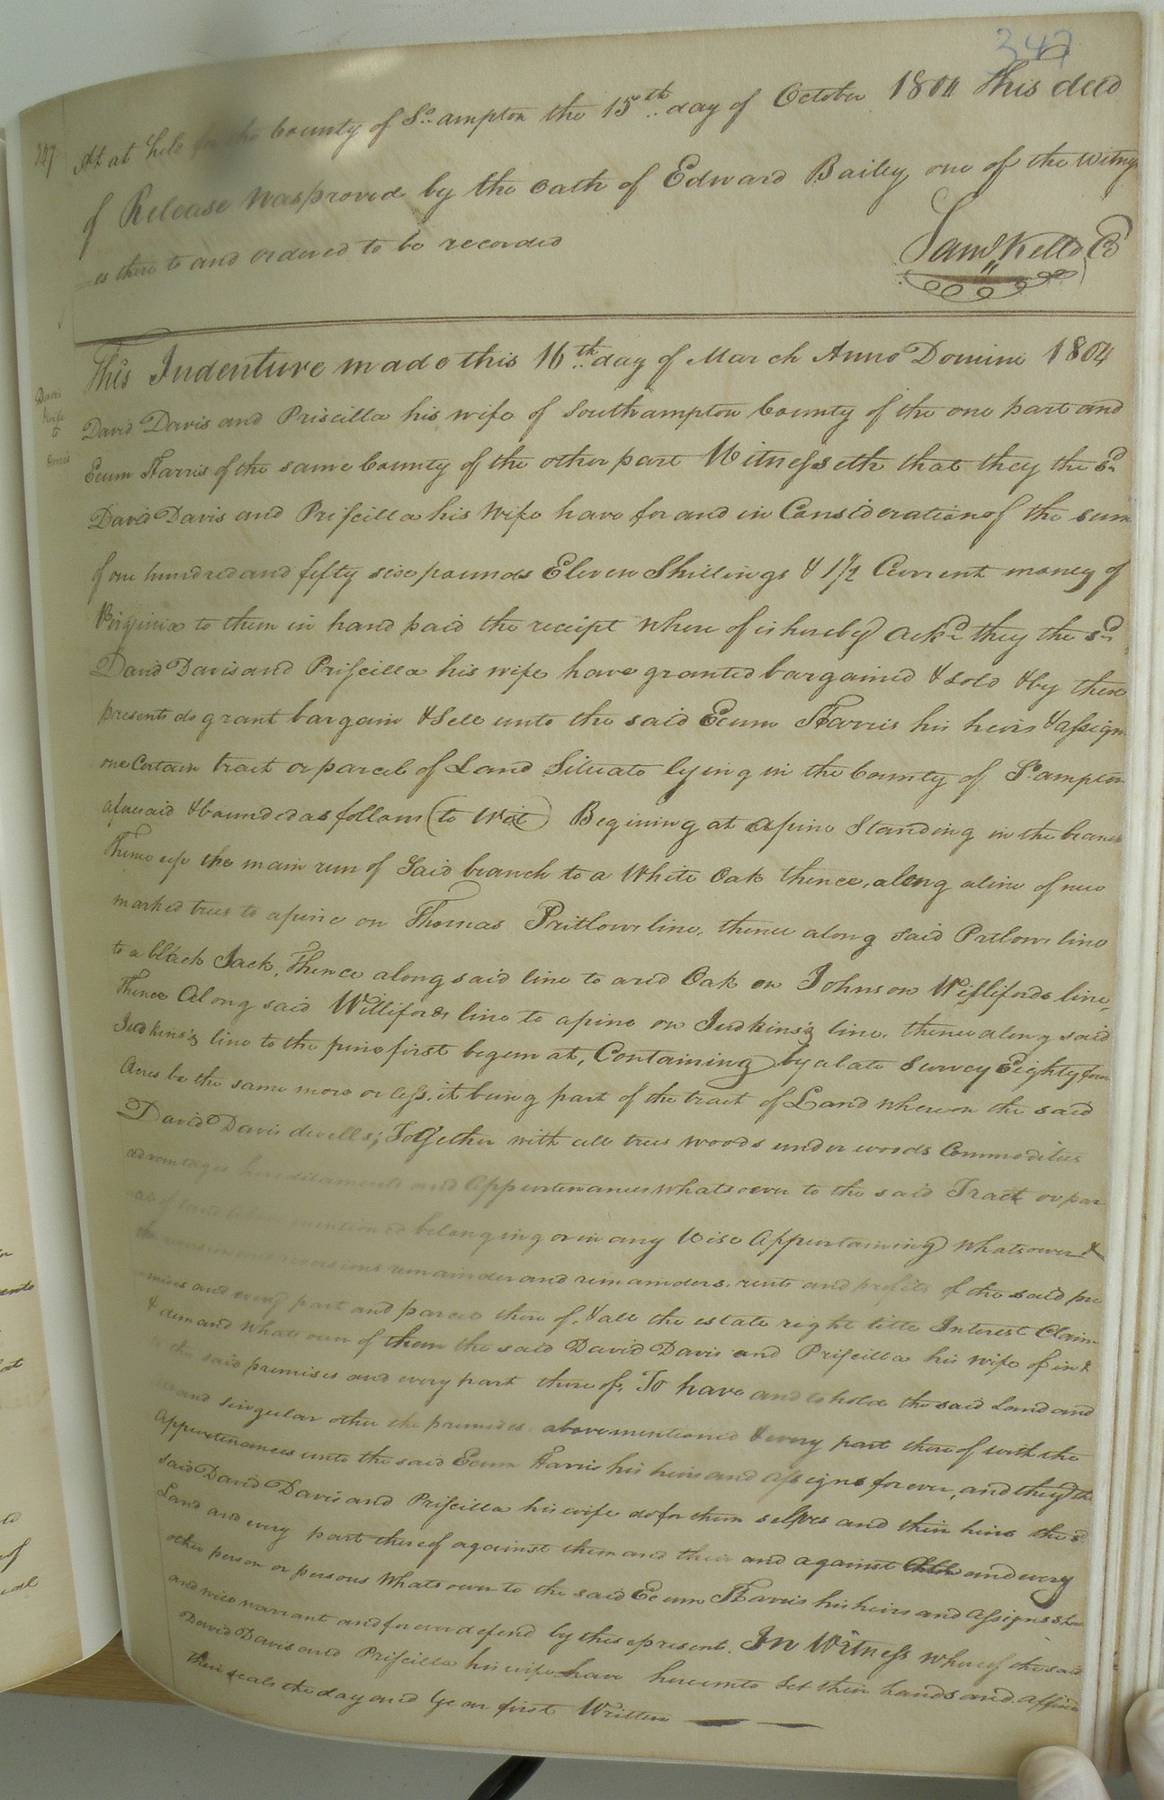 347
347
At at held for the County of So.ampton the 15th day of October 1804 This deed
of Release was proved by the oath of Edward Bailey one of the witness
es there to and ordered to be recorded
Saml Kello C
This Indenture made this 16th day of March Anno Domini 1804
Davis
to
David Davis and Priscilla his wife of Southampton County of the one part and
Ecum Harris of the same County of the other part Witnesseth that they the sd
David Davis and Priscilla his Wife have for and in Consideration of the sum
of one hundred and fifty six pounds Eleven Shillings & 1½ Current money of
Virginia to them in hand paid the receipt where of is hereby ackd they the sd
David Davis and Priscilla his wife have granted bargained & sold & by these
presents do grant bargain & Sell unto the said Ecum Harris his heirs & assigns
one Certain tract or parcel of Land Situate lying in the County of So.ampton
aforesaid & bounded as follows (to Wit) Begining at a pine Standing in the branch
Thence up the main run of Said branch to a White Oak thence, along a line of new
marked trees to a pine on Thomas Pritlows line, thence along Said Pretlows line
to a black Jack, Thence along said line to a red Oak on Johnson Willifords line,
Thence Along said Williford's line to a pine on Judkins's line, thence along said
Judkins's line to the pine first begun at, Containing by a late Survey Eighty four
Acres be the same more or less, it being part of the tract of Land whereon the said
David Davis dwells; Together with all trees woods under woods Commodities
advantages hereditaments and Appurtenances whatsoever to the said Tract or par
mentioned belonging or in any Wise Appurtaining whatsoever &
remainder and remainders, rents and profits of the said pre
mises and every part and parcel there of, & all the estate right title Interest Claim
& demand whatsoever of them the said David Davis and Priscilla his wife of in &
to the said premises and every part there of, To have and to hold the said Land and
and Singular other the premises above mentioned & every part there of with the
Appurtenances unto the said Ecum Harris his heirs and assigns for ever, and they the
said David Davis and Priscilla his wife do for them selves and their heirs the sd
Land and every part thereof against them and their and against and every
other person or persons Whatsoever to the said Ecum Harris his heirs and Assigns shall
and will warrant and forever defend by these present. In Witness whereof the said
David Davis and Priscilla his wife have hereunto Set their hands and affixed
their seals the day and Year first Written